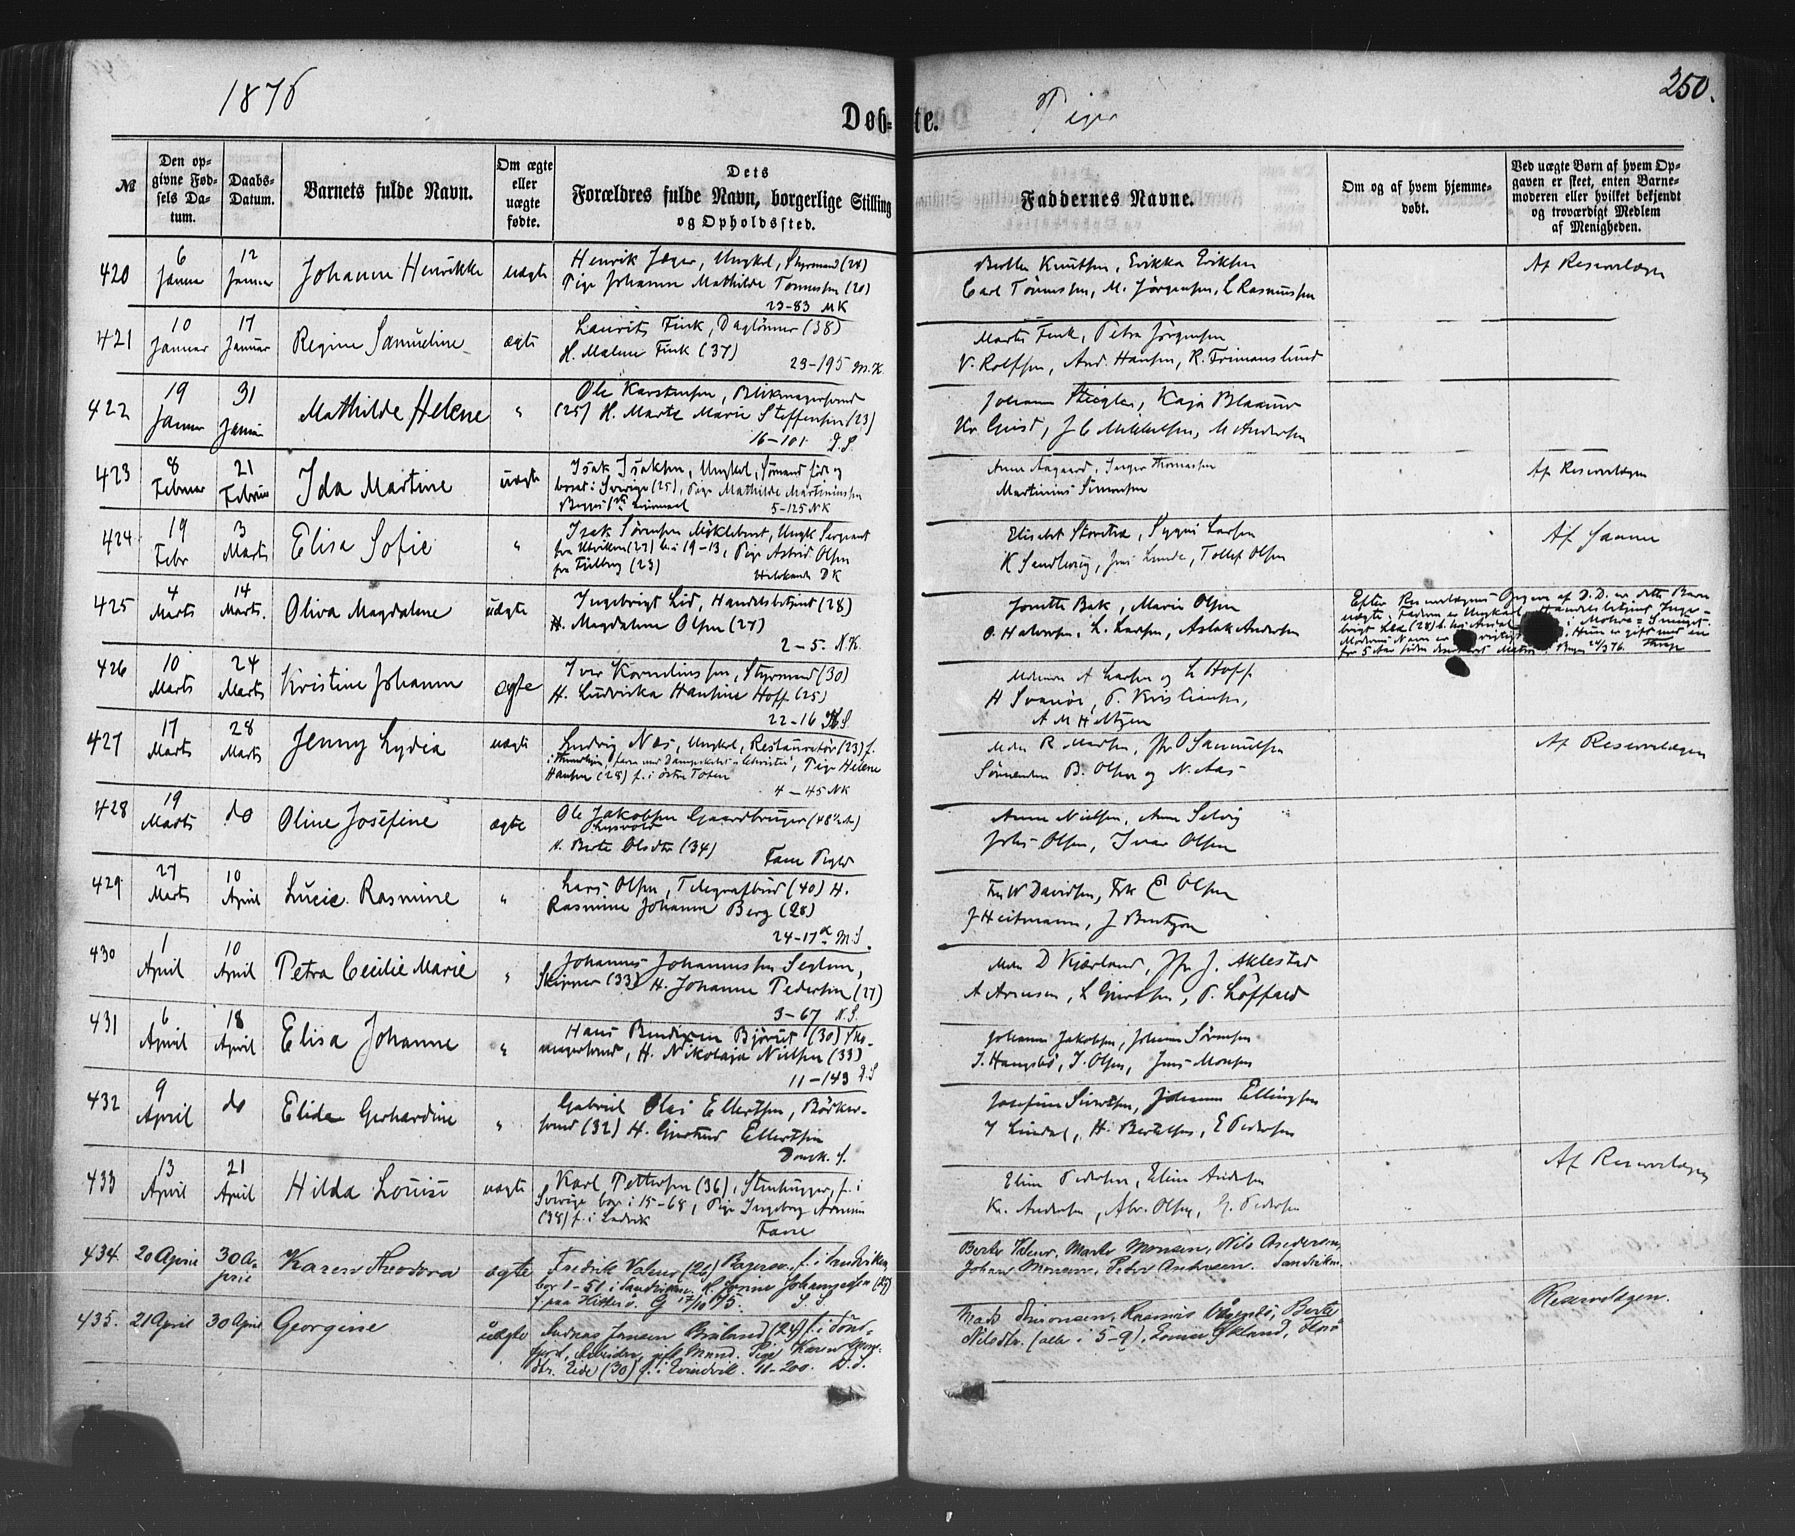 1876
Døb= te.
Piger
250.
№
Den op=
givne Fød=
sels Da=
tum.
Daabs=
Datum.
Barnets fulde Navn.
Om ægte
eller
uægte
fødte.
Dets
Forældres fulde Navn, borgerlige Stilling
og Opholdssted.
Faddernes Navne.
Om og af hvem hjemme=
døbt.
Ved uægte Børn af hvem Op=
gaven er skeet, enten Barne=
moderen eller hvilket bekjendt
og troværdigt Medlem
af Menigheden.
420 6 Januar 12 Januar Johanne Henrikke uægte
Henrik Jæger, Ungkl, Styrmand (28)
Pige Johanne Mathilde Tønnesen (20)
23-83 NK
Berthe Knutsen, Erikka Eriksen
Carl Tønnesen, M. Jørgensen, L Rasmussen
Af Reservelægen
421 10 Januar 17 Januar Regine Samueline ægte
Laurits Fink, Daglønner (38)
H. Malene Fink (37)
23-195 M.K.
Marte Fink, Petra Jørgensen
V. Rolfsen, And. Hansen, R. Frimanslund
422 19 Januar 31 Januar Mathilde Helene "
Ole Karstensen, Blikmagersvend
(25) H. Marte Marie Steffensen (23)
16-101 D.S.
Johanne Stiegler, Kaja Blaauw
Kr Quist, J C Mikkelsen, M Andersen
423 8 Februar 21 Februar Ida Martine uægte
Isak Isaksen, Ungkl, Sømand født og
bosat i Sverige (25), Pige Mathilde Martinussen
5-125 NK
Anne Aagaard, Inger Thomassen
Martinius Simonsen
Af Reservelægen
424 19 Febr 3 Marts Elisa Sofie "
Isak Sørensen Myklebust, Ungk Sergeant
fra Utviken (27) b. i 19-13, Pige Astrid Olsen
(23)
DK
Elisabet
K Sandberg, Jens Lunde, Tollef Olsen
Af Samme
425 4 Marts 14 Marts. Oliva Magdalene uægte
Ingebrigt Lid, Handelsbetjent (28)
H. Magdalene Olsen (27)
2-5. N.K.
Jonette Bak, Marie Olsen
O. Halvorsen, L. Larsen, Aslak Andersen
Efter Reservelægens Opgave af D.D. er dette Barn
uægte, Faderen er Ungkarl, Handelsbetjent Inge-
brigt Lid (28)
Moderens Navn er
for 5 Aar siden
426 10 Marts 24 Marts Kristine Johanne ægte
Iver Kornelius sen, Styrmand (30)
H. Ludvika Hansine Hoff (25)
22-16 N.S.
Madame A Larsen og L Hoff
H Svanøe, P. Kristiansen,
A M Heltzen
427 17 Marts 28 Marts Jenny Lydia uægte
Ludvig Næs, Ungkl, Restauratør (23) f.
i Trondhjem, Pige Helene
Hansen (28) f. i østre Toten
4-45 NK
Mdm R Madsen, Jfr O Samuelsen
Sømændene B. Olsen og N. Aas
Af Reservelægen
428 19 Marts do Oline Josefine ægte
Ole Jakobsen Gaardbruger (48 ½ A)
H. Berte Olsdtr (34)
Fane
Anne Nielsen, Anne Selvig
Johs Olsen, Ivar Olsen
429 27 Marts 10 April Lucie Rasmine "
Lars Olsen, Telegrafbud (40) H.
Rasmine Johanne Berg (28)
24-17 a M.S.
Fru W Davidsen, Frk C Olsen
J Heitmann, J Bentzon
430 1 April 10 April Petra Cecilie Marie "
Johannes Johannessen Seglem,
Skipper (33) H. Johanne Pedersen (27)
3-67 N.S.
Mdm D Kjærland, Jfr J. Aklestad
A Arnesen, L Gjertsen, P. Løffald
431 6 April 18 April Elisa Johanne "
Hans Bendixen Bjørset (30) Sko-
magersvend, H. Nikolaja Nielsen (33)
11-143 D.S
Johanne Jakobsen, Johanne Sørensen
S. Haugsbø, I. Olsen, Jens Monsen
432 9 April do Elida Gerhardine "
Gabriel Olai Ellertsen, Bødker-
svend (32) H. Gjertrud Ellertsen
Domk. S.
Josefine Sivertsen, Johanne Ellingsen
I Lindal, H. Bertelsen, E Pedersen
433 13 April 21 April Hilda Louise uægte
Karl Pettersen (36), Stenhugger, f. i
Sverige bor i 15-68, Pige Ingeborg
(38) f. i Ladvik
Fane
Eline Pedersen, Eline Andersen
Kr. Andersen, Abr. Olsen, G. Pedersen
Af Reservelægen
434. 20 April 30 April Karen Theodora ægte
Fredrik Valeur (26) f. i Sandviken,
bor 1-51 i Sandviken. H. Josine Johannesen (29)
f. paa Hitterø. G 17/10 75. S.S.
Berte Valeur, Marte Monsen, Nils Andersen,
Johan Monsen, Peder Andersen. Sandviken.
435. 21 April 30 April Georgine uægte
Andreas Jansen Bruland (24) f. i Sønd-
fjord, Arbeider, gift Mand. Pige Karen Georg-
dtr. Eide (30) f. i Evindvik. 11-200. D.S.
Mads Simonsen, Rasmus Berte
Nilsdtr. (alle i 5-9),
Reservelægen.